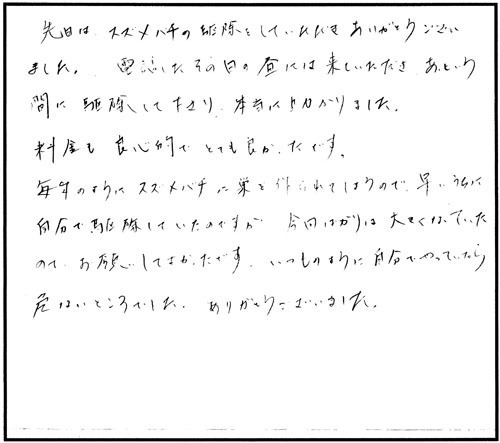 先日は、スズメバチの駆除をしていただき ありがとうござい
ました。 電話したその日の昼には来ていただき、あっという
間に駆除して下さり、本当に助かりました。
料金も良心的でとても良かったです。
毎年のようにスズメバチに巣を作られてしまうので、早いうちに
自分で駆除していたのですが 今回ばかりは大きくなっていた
ので、お願いしてよかったです。いつものように自分でやっていたら
危ないところでした。ありがとうございました。